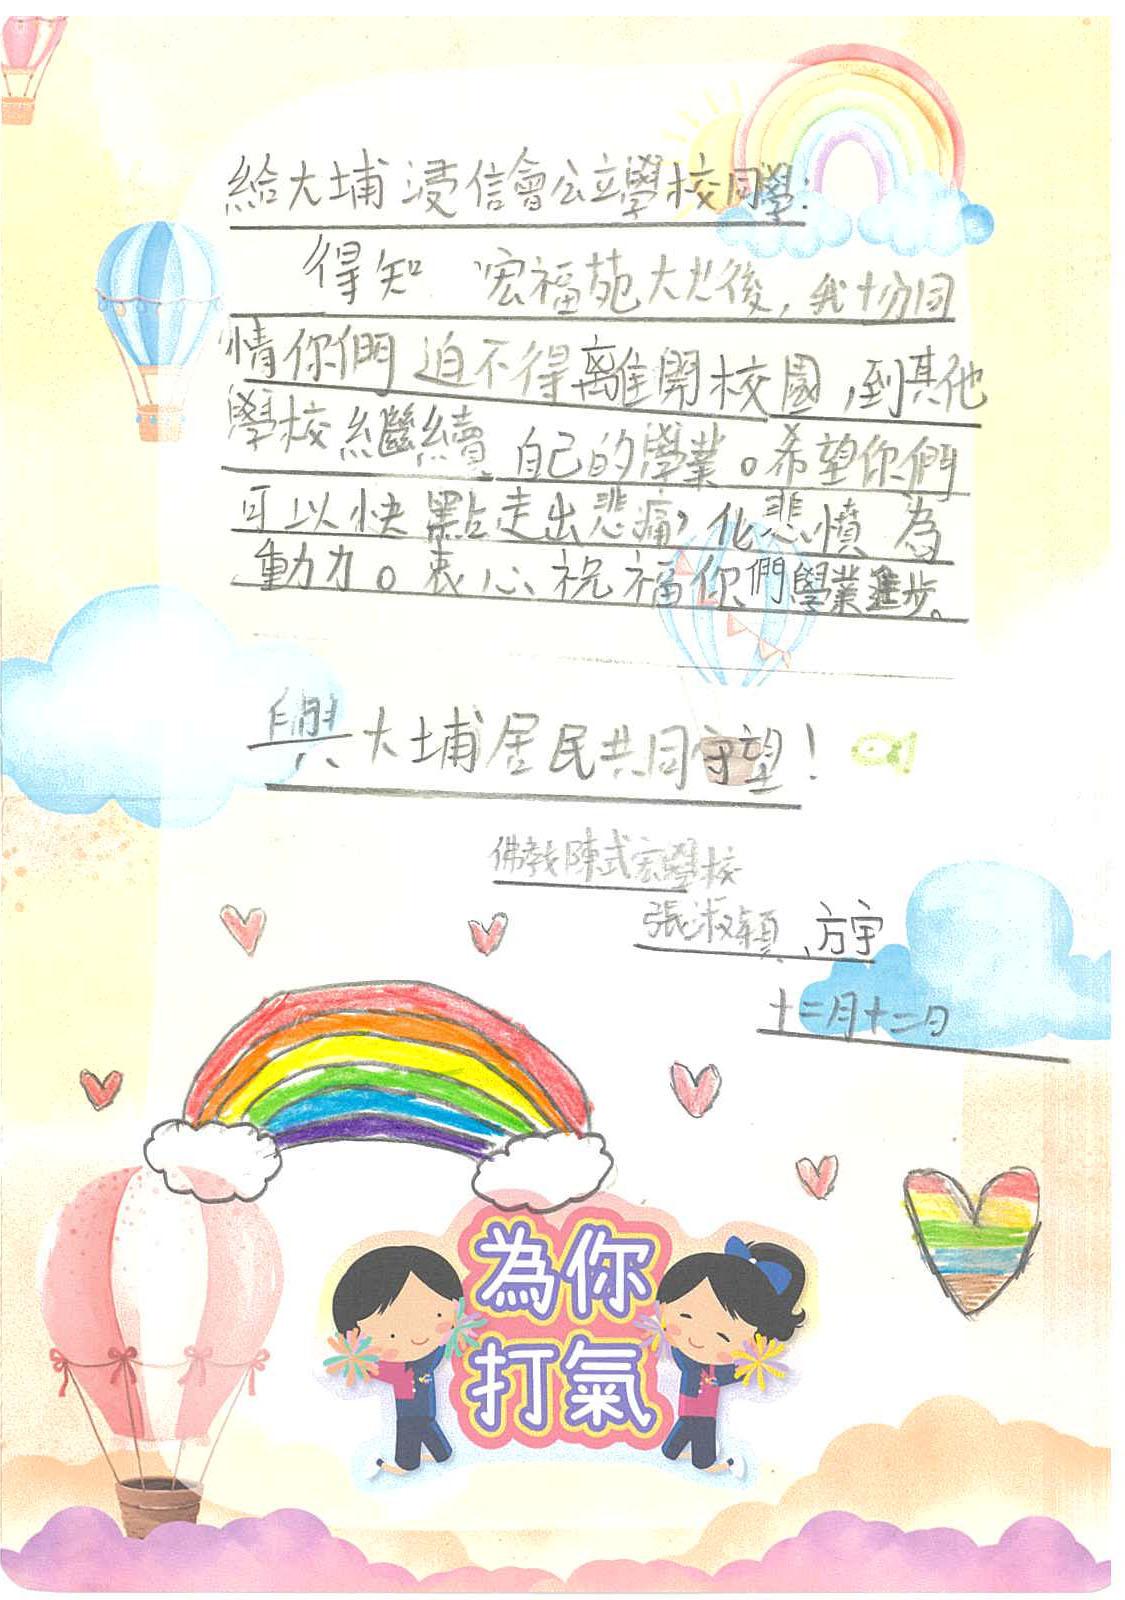 給大埔浸信會公立學校同學:
得知 宏福苑大火後,我十分同
情你們迫不得離開校園,到其他
學校繼續自己的學業。希望你們
可以快點走出悲痛,化悲憤為
動力。衷心祝福你們學業進步。
與大埔居民共同守望!
佛教陳式宏學校
張淑穎、方宇
十二月十二日
為你
打氣